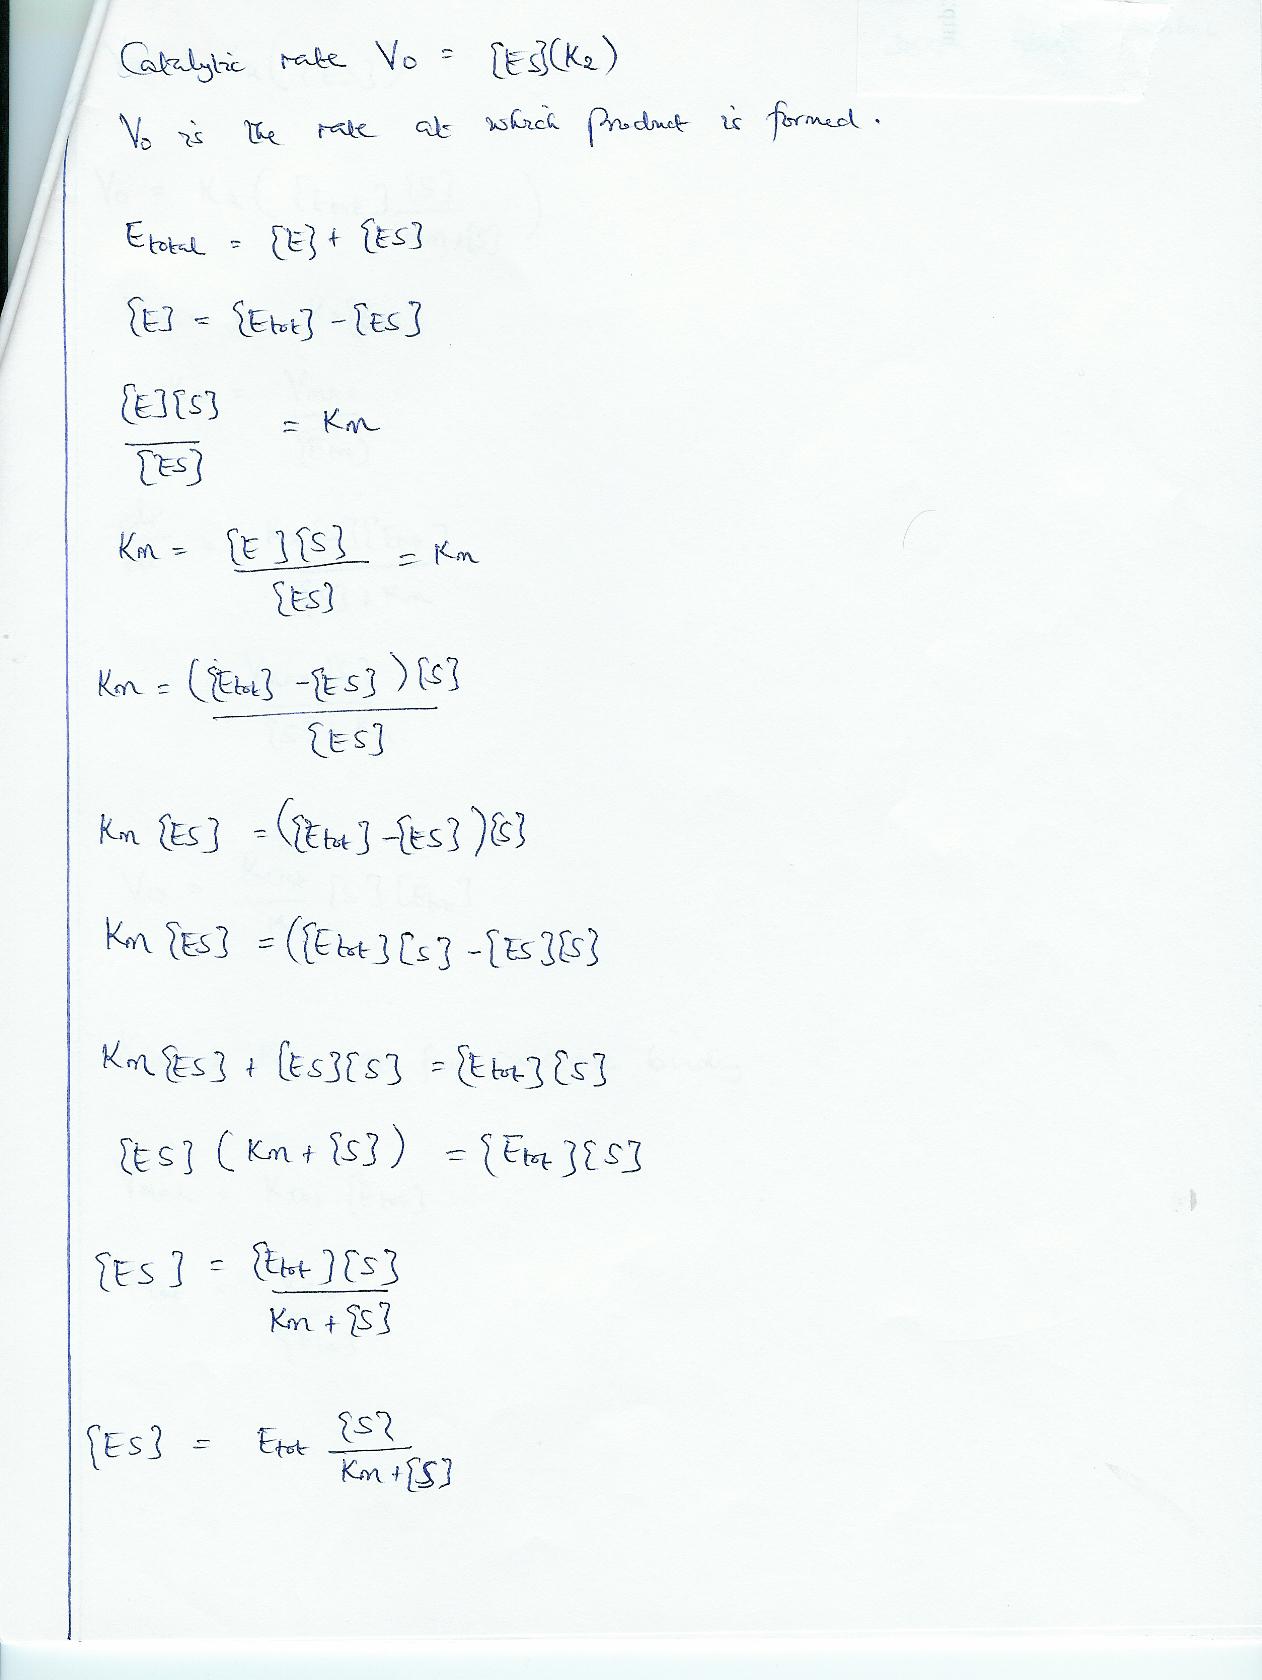 Catalytic rate Vo = [ES](K2)
Vo is the rate at which product is formed.
Etotal = [E] + [ES]
[E] = [Etot] - [ES]
[E][S]
= Km
[ES]
Km = [E][S] = Km
[ES]
Km = ([Etot] - [ES])[S]
[ES]
Km [ES] = ([Etot] - [ES])[S]
Km [ES] = ([Etot][S] - [ES][S]
Km [ES] + [ES][S] = [Etot][S]
[ES] (Km + [S]) = [Etot][S]
[ES] = [Etot][S]
Km + [S]
[ES] = Etot [S]
Km + [S]